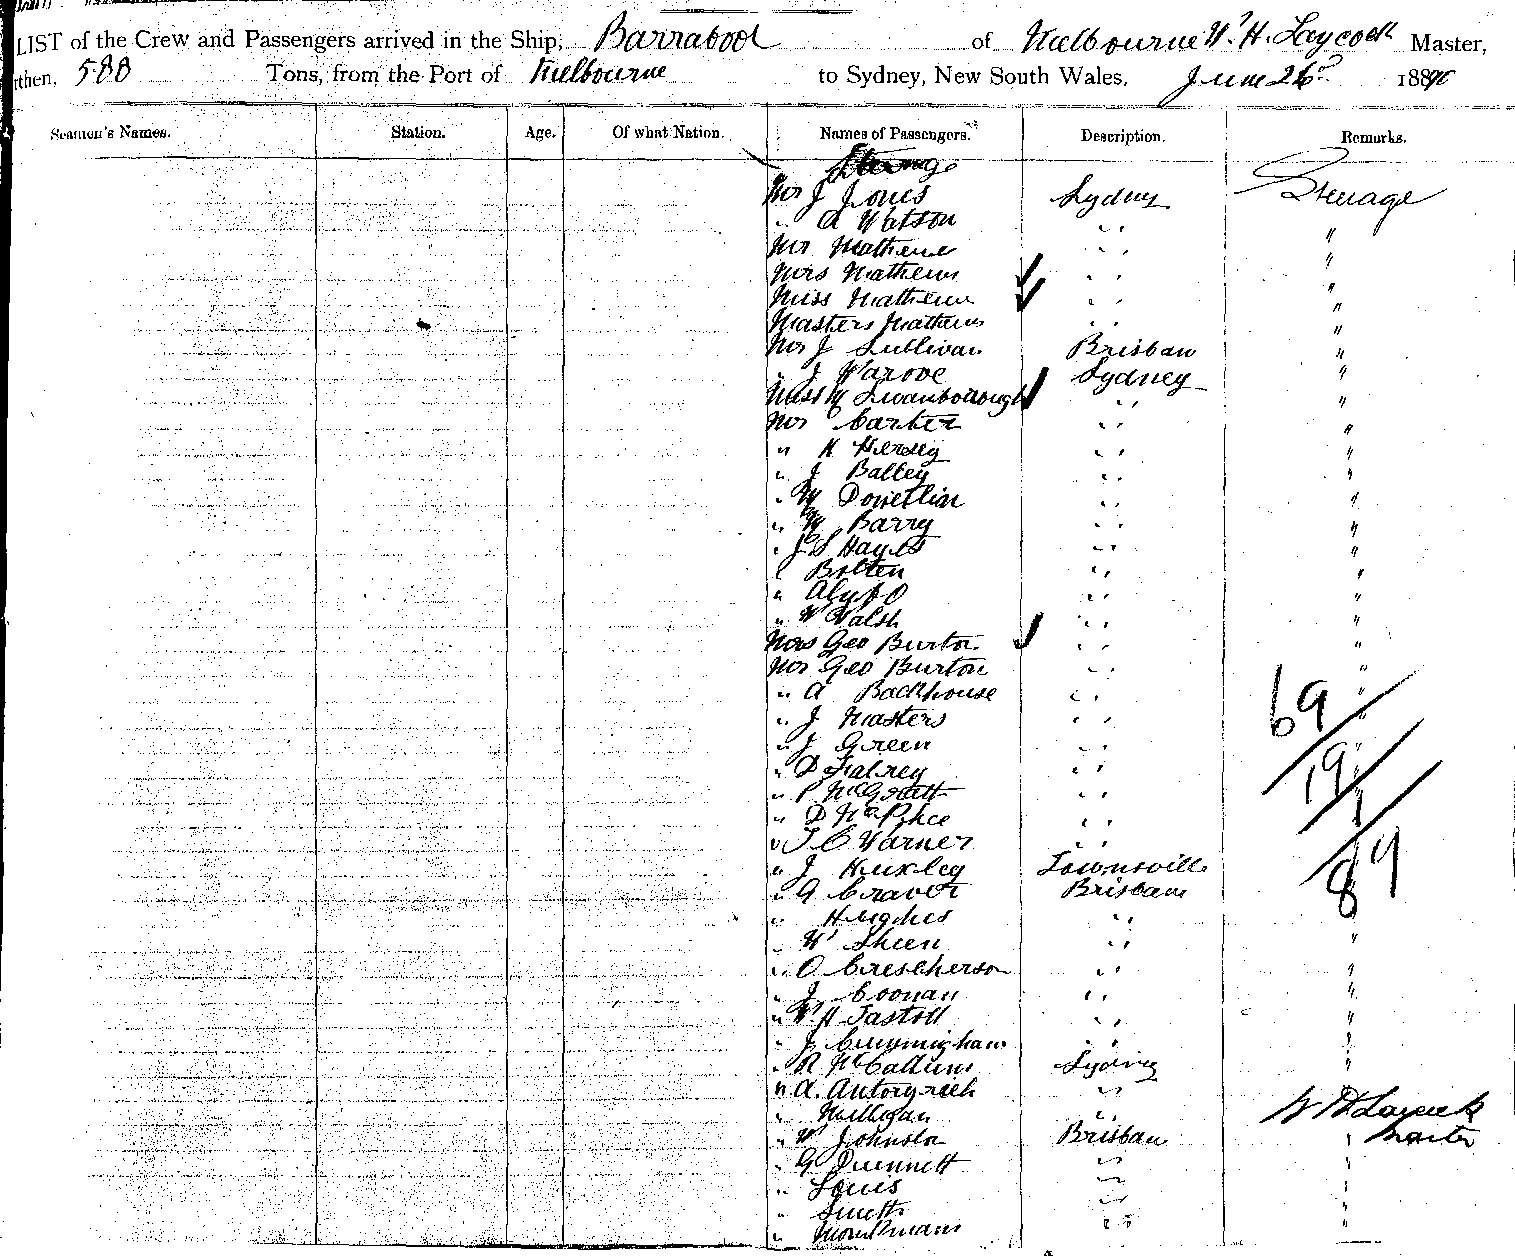 LIST of the Crew and Passengers arrived in the Ship, Barrabool of Melbourne W. H. Laycock Master,
rthen, 588 Tons, from the Port of Melbourne to Sydney, New South Wales, June 26 1890
Seamen's Names. Station. Age. Of what Nation. Names of Passengers. Description. Remarks.
Steerage
Mr J Jones Sydney Steerage
" A Watson " "
Mr Mathews " "
Mrs Mathews " "
Miss Mathews " "
Masters Mathews " "
Mr J Sullivan Brisban "
" J Warove Sydney "
Miss M Swanborough " "
Mr Carter " "
" H Hersey " "
" J Balley " "
" W Donellin " "
" W Barry " "
" J S Hayes " "
" Bolten " "
" " "
" W Walsh " "
Mrs Geo Burton " "
Mr Geo Burton " "
" A Backhouse " "
" J Masters " 69
" J Green "
" D Falvey " 19
" P McGrath "
" D "
" T C Warner "
" J Huxley Townsville 89
" G Craven Brisbane
" Hughes "
" W Sheen " "
" O " "
" J Coonan " "
" W H " "
" J Cunningham " "
" R McCallum Sydney "
" A. "
" Milligan " W H Laycock
" W Johnston Brisban " Master
" G Quennell " "
" Louis " "
" Smith " "
" " "